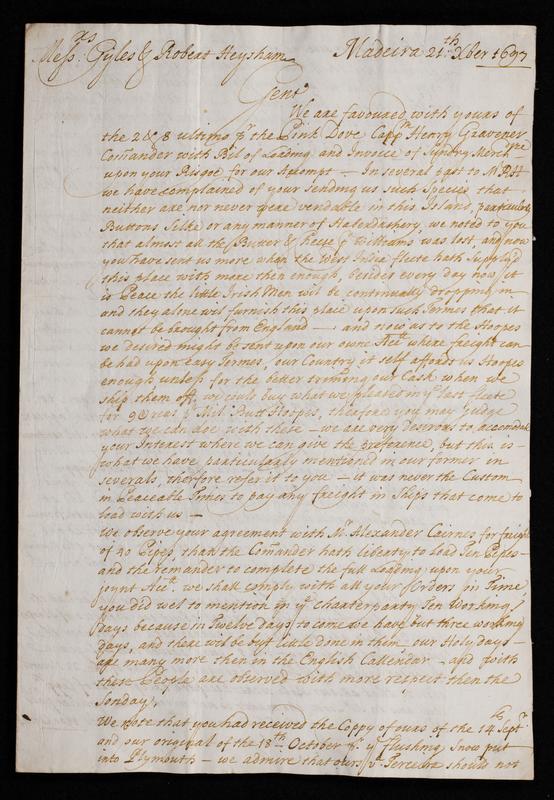 Mess.rs Gyles & Robert Heysham Madeira 21.th Xber 1697
Gent.
We are favoured with yours of
the 2 & 8 ultimo p.r the Pink Dove Cap.n Henry Gravener
Comander with Bil of Loading and Invoice of Sundry Merch.
upon your Risgoe for our Accompt — In several past to M.
we have complained of your sending us such Species that
neither are nor never were vendable in this Island, particularly
Buttons Silke or any manner of Haberdashery, we noted to you
that almost all the Butter & Cheese p. Williams was lost, and now
you have sent us more when the West India fleete hath Supply'd
this place with more then enough, besides every day now it
is Peace the little Irish Men wil be continually dropping in
and they alone wil furnish this place upon such Termes that it
cannot be brought from England — and now as to the Hoopes
we desired might be sent upon our owne Acc.t where freight can
be had upon easy Termes, our Country it self affords us Hoopes
enough unless for the better triming our Cask when we
ship them off, we could buy what we pleased my last fleete
for 90 reas p. Mil. Butt Hoopes, therefore you may judge
what we can doe with these — we are very desirous to accomodate
your Interest where we can give the preference, but this is —
what we have particularly mentioned in our former in
severals, therfore refer it to you — it was never the Custom
in Peaceable Times to pay any freight in Ships that come to
load with us —
We observe your agreement with M.r Alexander Cairnes for freight
of 40 Pipes, than the Comander hath liberty to load Ten Pipes —
and the remainder to complete the full Loading upon your
joynt Acc.t we shall comply with all your Orders in Time,
you did wel to mention in y.e Charterparty Ten Working
days because in Twelve days to come we have but three working
days, and there wil be but little done in them, our Holy days —
are many more then in the English Callendar — and with
these People are observed with more respect then the
Sonday.
We note that you had received the Coppy of ours of the 14.th Sept.r
and our original of the 18.th October p.r y.e flushing Snow put
into Plymouth — we admire that ours p. Terceira should not